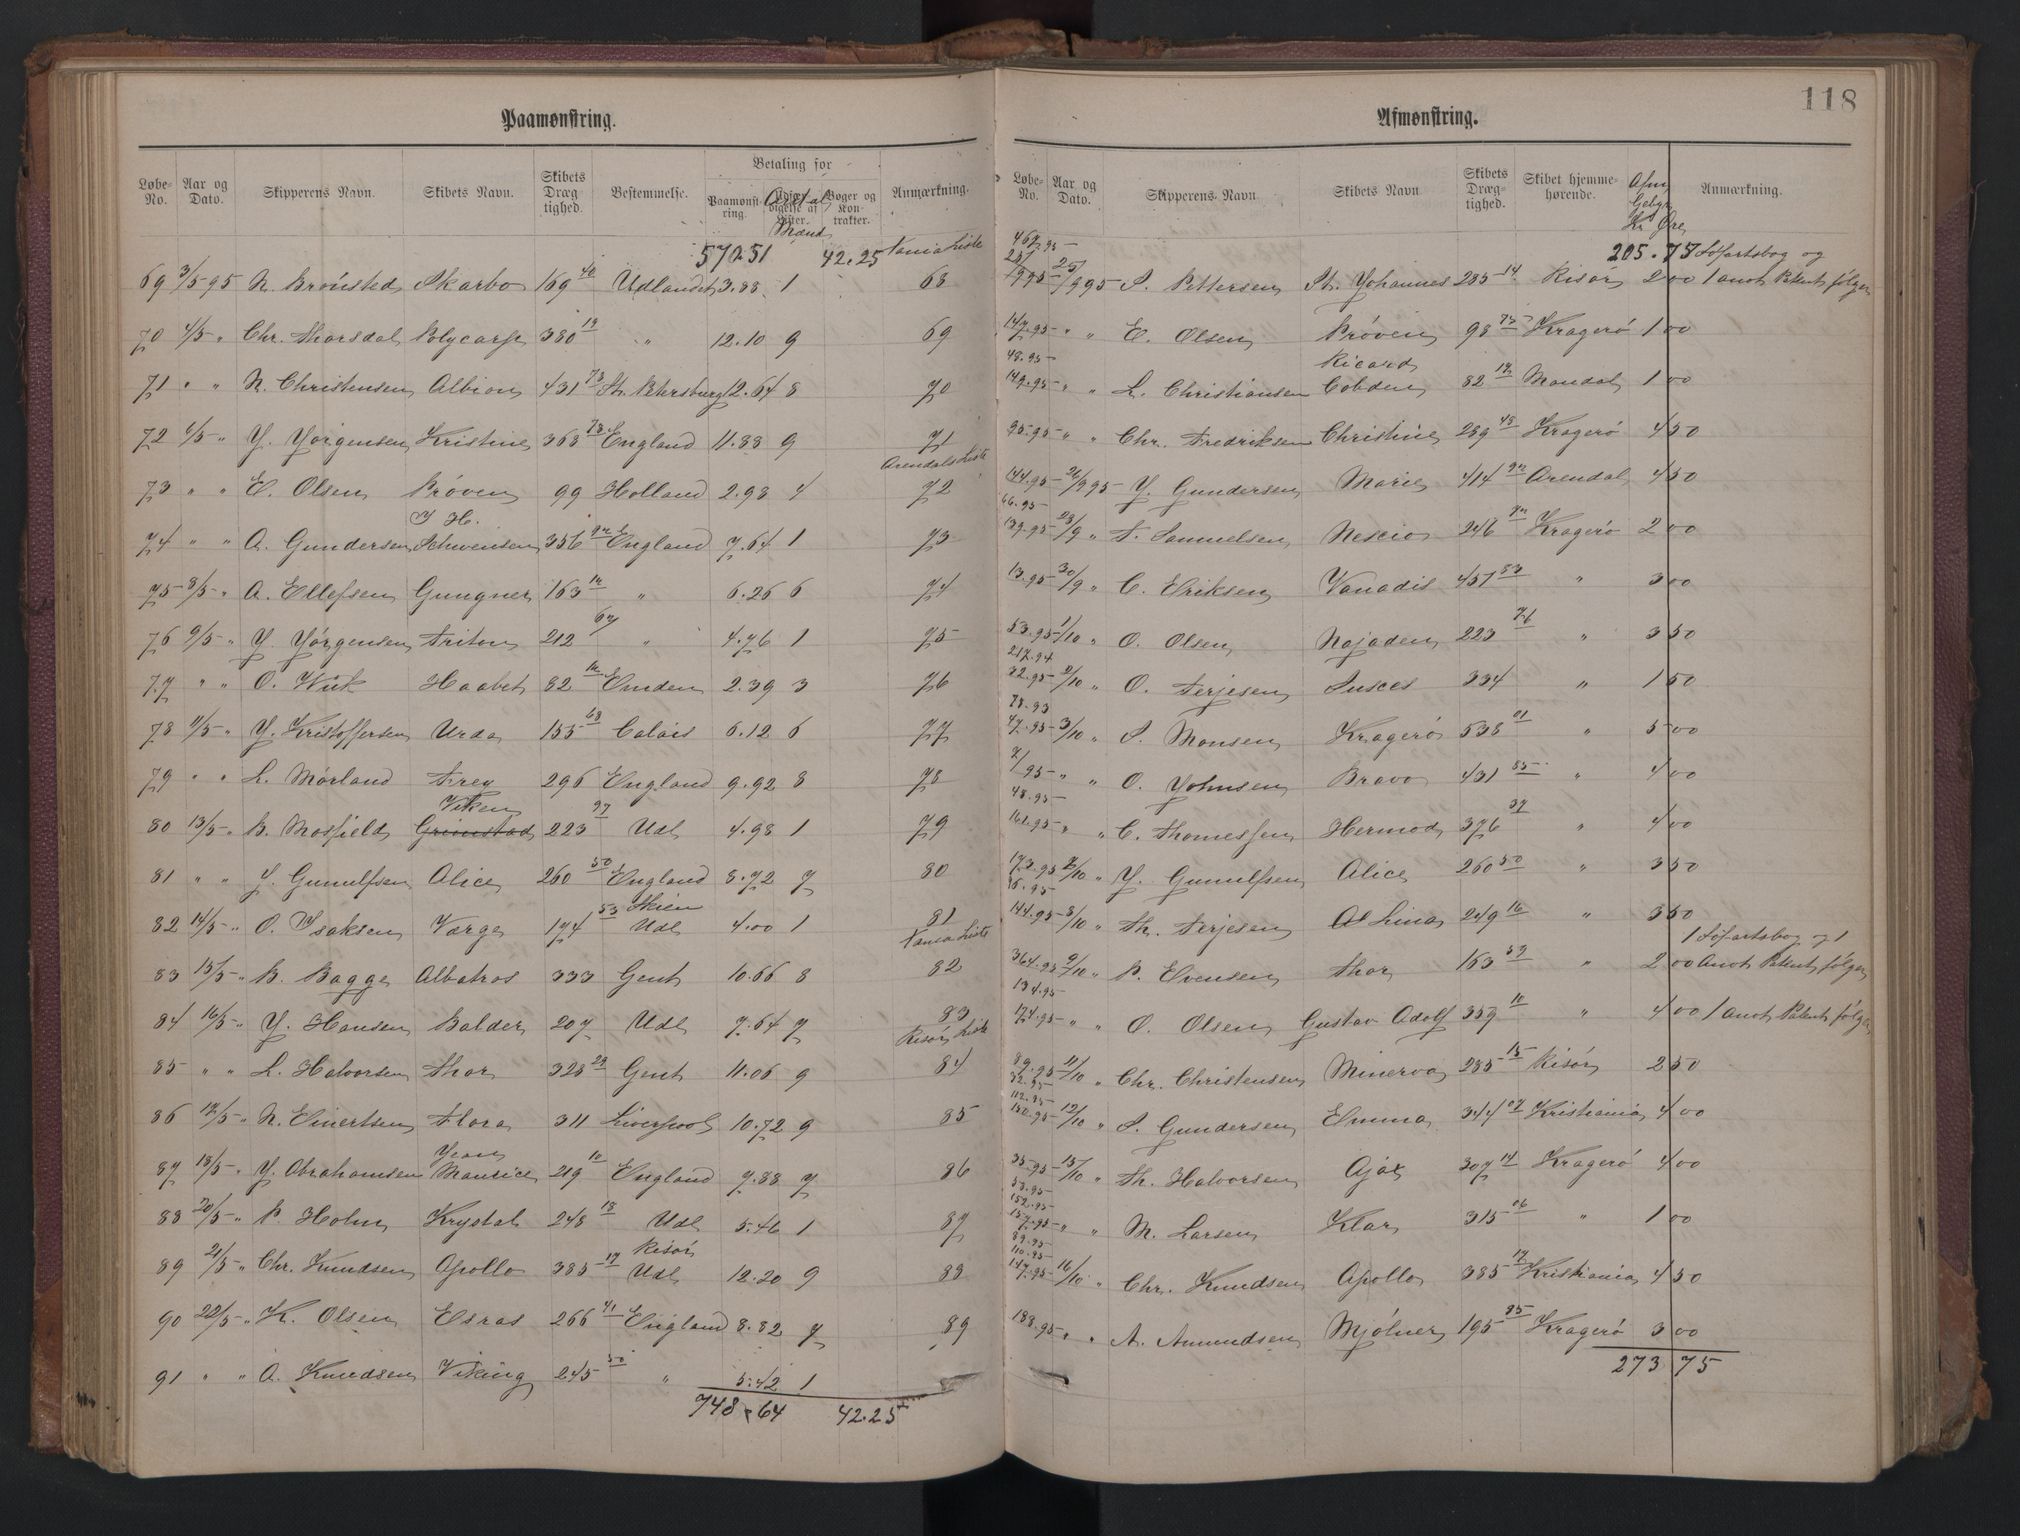 118
Paamønstring.
Løbe-No. Aar og Dato. Skipperens Navn. Skibets Navn. Skibets Dræg-tighed. Bestemmelse. Betaling for Paamønst-ring. Antal Mænd Bøger og Kon-trakter. Anmærkning.
570.51 42.25 Vania Liste
69 3/5 95 N. Brönsted Skarbo 169 40 Udlandet 3.88 1 68
70 4/5 " Chr. Thorsdal Polycarp 380 19 " 12.10 9 69
71 " " N. Christensen Albion 431 73 St. Petersburg 12.64 8 70
72 6/5 " J. Jörgensen Kristine 368 73 England 11.88 9 71
Arendals Liste
73 " " E. Olsen Pröven 99 Holland 2.98 4 72
J H.
74 " " A. Gundersen Schwensen 356 England 7.64 1 73
75 8/5 " A. Ellefsen Gungner 163 " 6.26 6 74
76 9/5 " J. Jörgensen Triton 212 67 " 4.76 1 75
77 " " O. Wiik Haabet 82 Emden 2.39 3 76
78 11/5 " J. Kristoffersen Urda 155 68 Calais 6.12 6 77
79 " " L. Mørland Frey 296 England 9.92 8 78
Viken
80 13/5 " B. Mosfield Grimstad 223 97 Udl 4.98 1 79
81 " " J. Gunulfsen Alice 260 50 England 8.72 7 80
Skien
82 14/5 " O. Isaksen Varge 174 53 Udl 4.00 1 81
Vania Liste
83 15/5 " B. Bagge Albatros 333 Gent 10.66 8 82
84 16/5 " J. Hansen Balder 207 Udl 7.64 7 83
Risör Liste
85 " " L. Halvorsen Thor 328 29 Gent 11.06 9 84
86 17/5 " N. Einertsen Flora 311 Liverpool 10.72 9 85
Jean
87 18/5 " J. Abrahamsen Maurice 219 10 England 7.88 7 86
88 20/5 " P. Holm Krystal 248 18 Udl 5.46 1 87
Risör
89 21/5 " Chr. Knudsen Apollo 385 17 Udl 12.20 9 88
90 22/5 " K. Olsen Esras 266 41 England 8.82 7 89
91 " " A. Knudsen Viking 245 50 " 5.42 1
748.64 42.25
Afmønstring.
Løbe-No. Aar og Dato. Skipperens Navn Skibets Navn. Skibets Dræg-tighed. Skibet hjemme-hørende. Kr Øre Anmærkning.
205.75 Söfartsbog og
25/9 95 S. Pettersen St. Johannes 285 14 Risör 2 00 1 anot Patent følger
147.95 " " E. Olsen Pröven 98 75 Kragerö 1 00
48.95 Ricard
149.95 " " L. Christiansen Cobden 82 19 Mandal 1 00
95.95 " " Chr. Fredriksen Christine 289 48 Kragerö 4 50
144.95 26/9 95 J. Gundersen Marie 414 Arendal 4 50
66.95
139.95 28/9 " T. Samuelsen Nescio 246 Kragerö 2 00
13.95 30/9 " C. Eriksen Vanadis 457 83 " 3 00
53.95 1/10 " O. Olsen Najaden 223 76 " 3 50
217.94
32.95 2/10 " O. Terjesen Susces 334 " 1 50
78.93
47.95 3/10 " S. Monsen Kragerö 538 01 " 5 00
7/95 " " O. Johnsen Bravo 431 85 " 4 00
48.95
161.95 " " C. Thomessen Hermod 376 39 " 4 00
173.95 7/10 " J. Gunulfsen Alice 260 50 " 3 50
16.95
144.95 8/10 " Th. Terjesen Al Lina 249 16 " 3 50
1 Söfartsbog og 1
364.95 9/10 " P. Evensen Thor 163 59 " 2 00 Anot Patent følger
134.95
174.95 " " O. Olsen Gustav Adolf 359 10 " 4 00 1 Anot Patent følger
89.95 11/10 " Chr. Christensen Minerva 285 15 Risör 2 50
112.95
150.95 12/10 " S. Gundersen Emma 344 07 Kristiania 4 00
35.95 15/10 " Th. Halvorsen Ajax 307 14 Kragerö 4 00
53.95
152.95
" " M. Larsen Klar 315 06 " 1 00
89.95
110.95
147.95 16/10 " Chr. Knudsen Apollo 385 17 Kristiania 4 50
188.95 " " A. Amundsen Mjölner 195 95 Kragerö 3 00
273 75